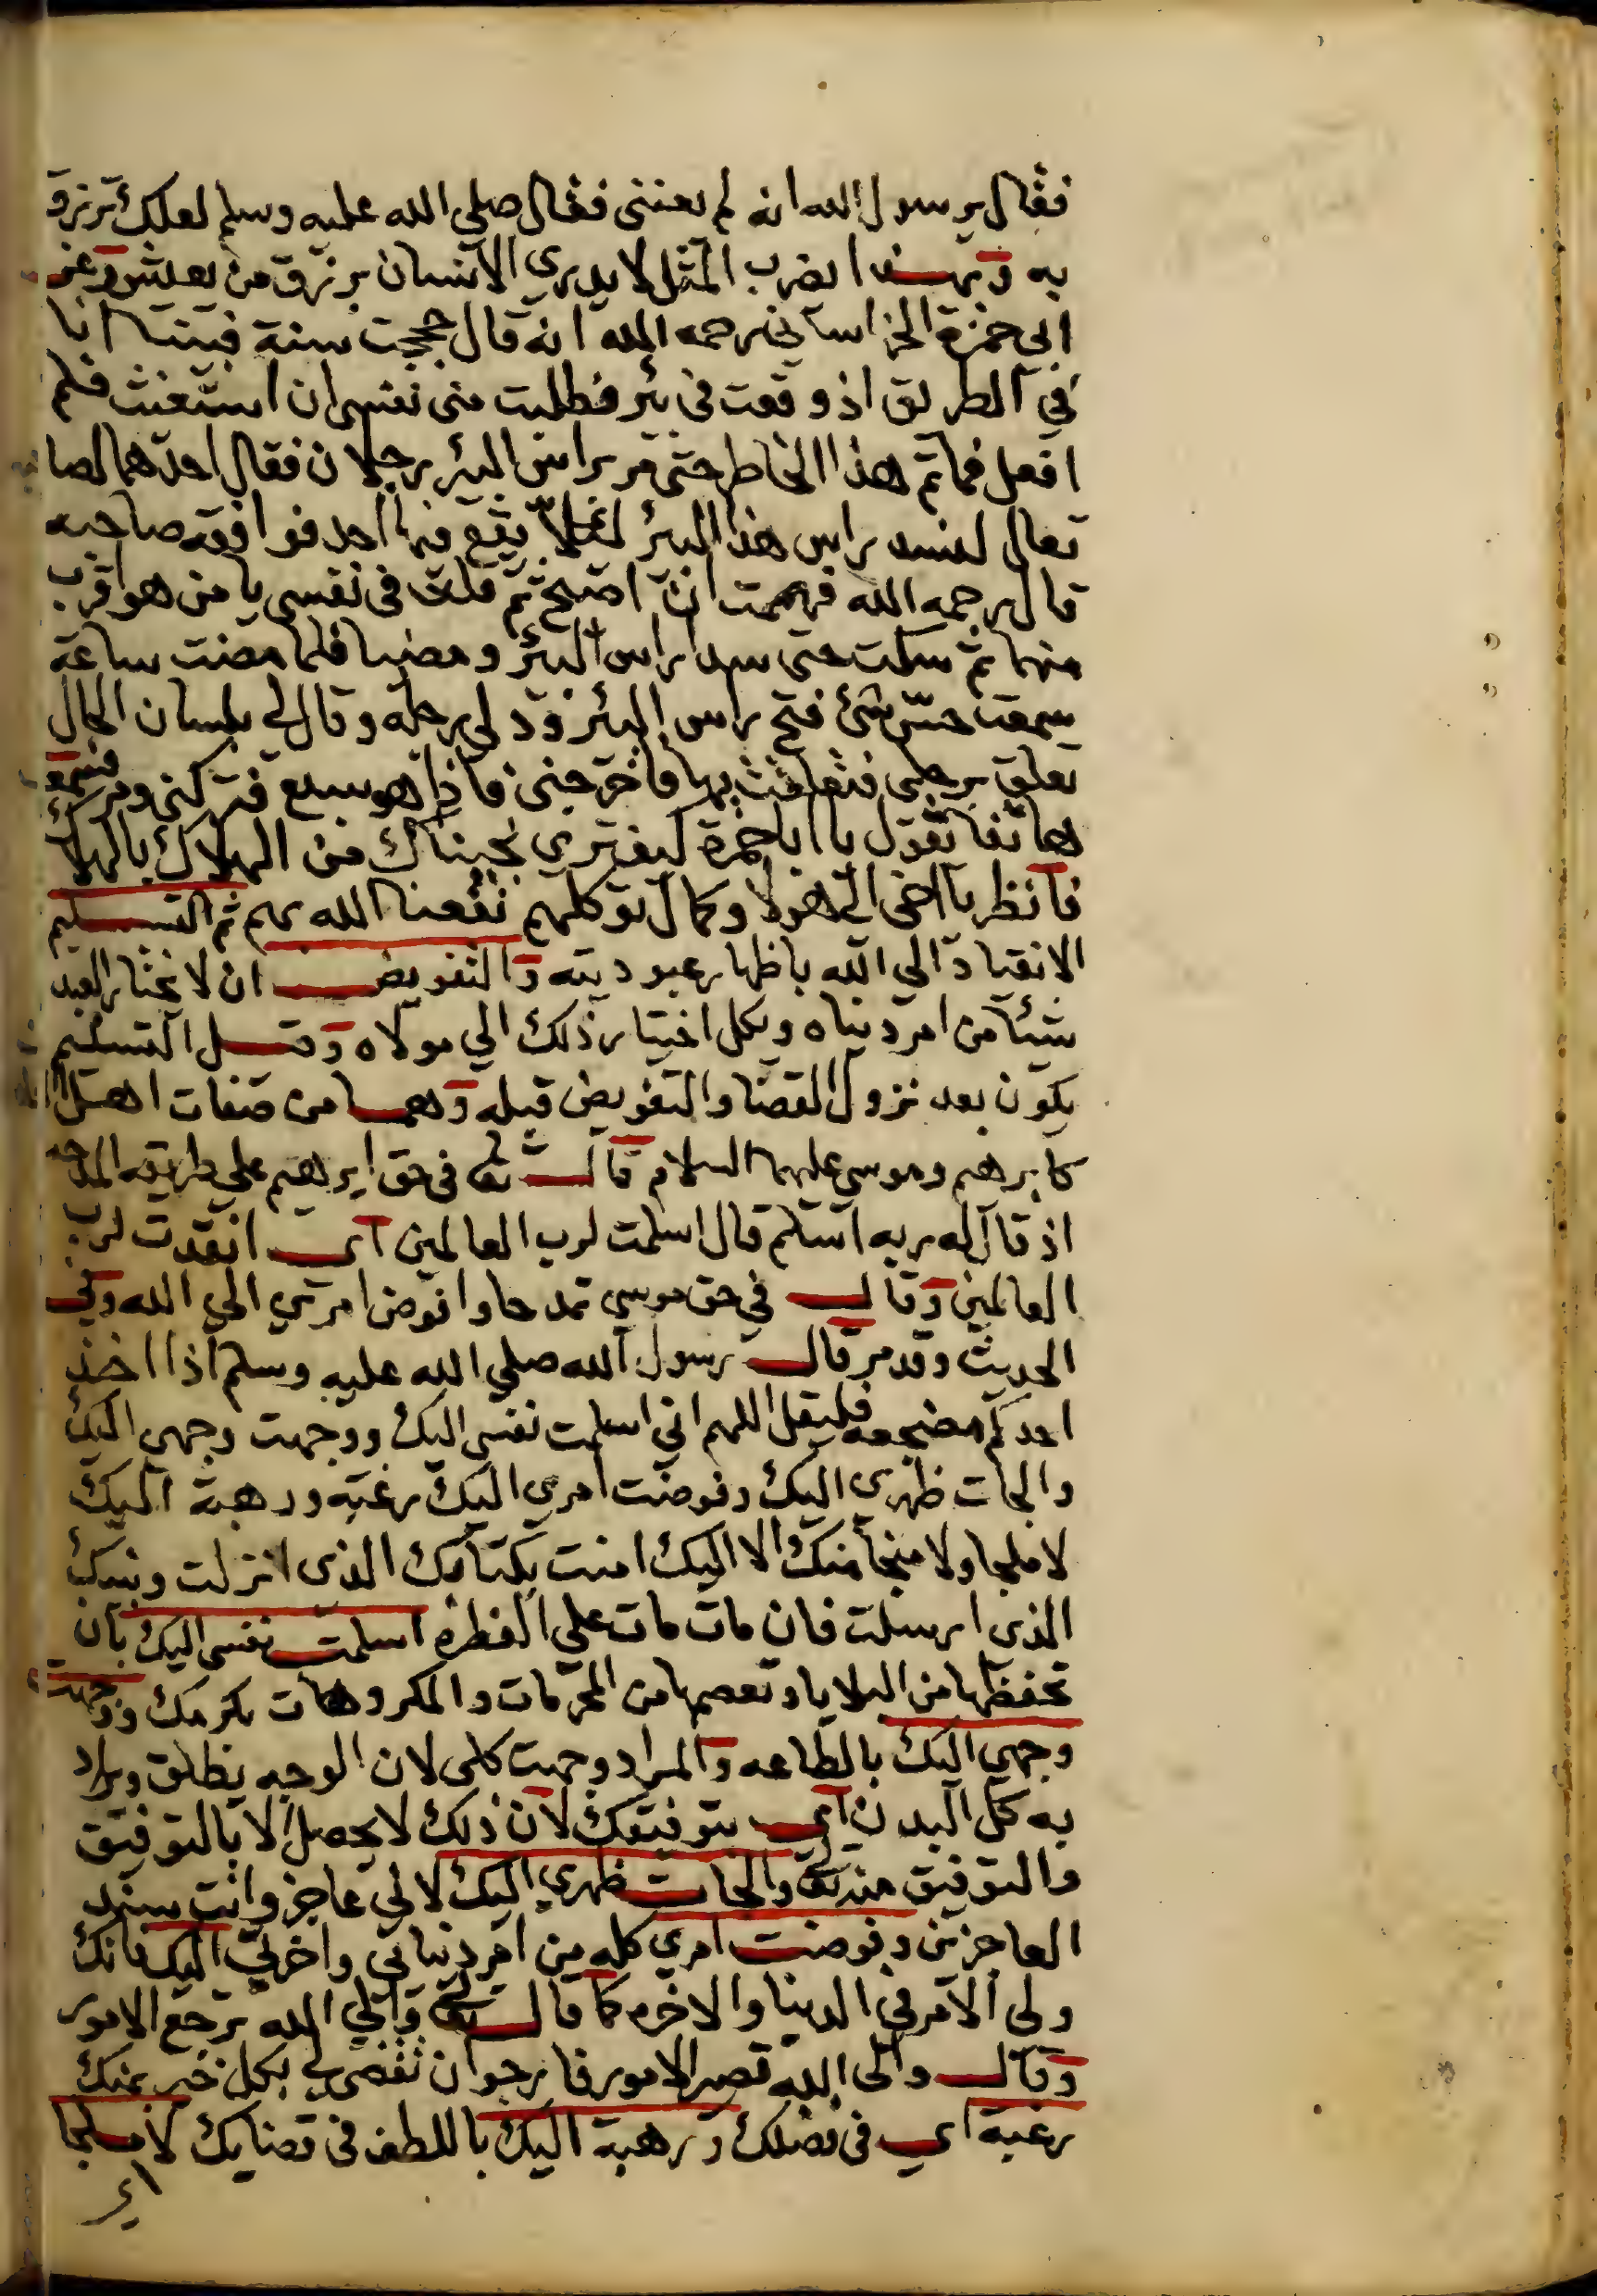 فقال يرسول الله انه لم يعننى فقال صلي الله عليه وسلم لعلك ترزق
به وبهذا يضرب المثل لا يدري الانسان يرزق من يعيش وعن
ابي حمزة الخراساني رحمه الله انه قال حججت سنة فبينا انا
في الطريق اذ وقعت في بئر فطلبت مني نفسي ان استغيث فلم
افعل فما تم هذا الخاطر حتى مر براس البئر رجلان فقال احدهما لصا
تعال لنسد راس هذا البئر لئلا يقع فيها احد فوافقه صاحبه
قال رحمه الله فهممت ان اصيح ثم قلت في نفسي يا من هو اقرب
منهما ثم سكت حتى سدا راس البئر ومضيا فلما مضت ساعة
سمعت حسّ شئ فتح راس البئر ودلي رجله وقال لي بلسان الحال
تعلق برجلي فتعلقت بها فاخرجني فاذا هو سبع فتركني ومر فسمعت
هاتفا يقول يا ابا حمزة كيف تري نجيناك من الهلاك بالهلاك
فانظر يا اخي الي هولا وكمال توكلهم نفعنا الله بهم ثم التسليم
الانقياد الي الله باظهار عبوديته والتفويض ان لا يختار العبد
شيئا من امر دنياه ويكل اختيار ذلك الي مولاه وقيل التسليم
يكون بعد نزول القضا والتفويض قبله وهما من صفات اهل
كابرهيم وموسي عليهما السلام قال تعالى في حق ابرهيم علي طريقه المدحه
اذ قال له ربه اسلم قال اسلمت لرب العالمين اي انقدت لرب
العالمين وقال في حق موسي تمدحا وافوض امري الي الله وفي
الحديث وقد مر قال رسول الله صلي الله عليه وسلم اذا اخذ
احدكم مضجعه فليقل اللهم اني اسلمت نفسي اليك ووجهت وجهي اليك
والجات ظهري اليك وفوضت امري اليك رغبه ورهبة اليك
لا ملجا ولا منجا منك الا اليك امنت بكتابك الذي انزلت ونبيك
الذي ارسلت فان مات مات علي الفطره اسلمت نفسي اليك بان
تحفظها من البلايا وتعصمها من المحرمات والمكروهات بكرمك ووجهت
وجهي اليك بالطاعه والمراد وجهت كلي لان الوجه يطلق ويراد
به كل البدن اي بتوفيقك لان ذلك لا يحصل الا بالتوفيق
والتوفيق منك والجات ظهري اليك لاني عاجز وانت سند
العاجزين وفوضت امري كله من امر دنياي واخرتي اليك فانك
ولي الامر في الدنيا والاخره كما قال تعالى والي الله ترجع الامور
وقال والي الله تصير الامور فارجو ان تقضي لي بكل خير بمنك
رغبة اي في فضلك ورهبة اليك باللطف في قضايك لا ملجا
اي